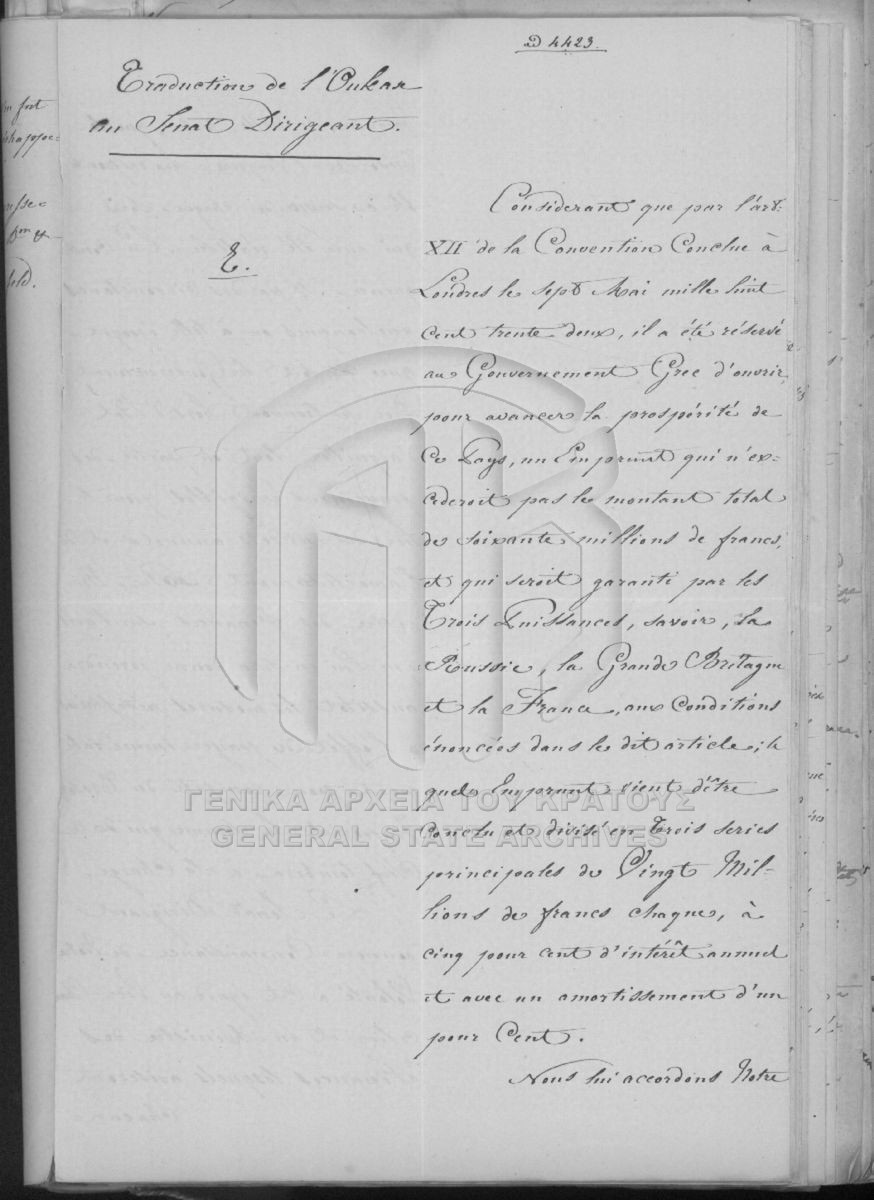 D 4423.
Traduction de l'Oukase
au Senat Dirigeant.
E.
Considerant que par l'art:
XII de la Convention Conclue à
Londres le sept Mai mille huit
cent trente deux, il a été réservé
au Gouvernement Grec d'ouvrir,
pour avancer la prospérité de
Ce Pays, un Emprunt qui n'ex-
cederoit pas le montant total
de soixante millions de francs,
et qui seroit garanti par les
Trois Puissances, savoir, la
Russie, la Grande Bretagne
et la France, aux Conditions
énoncées dans le dit article; le
quel Emprunt vient d'être
Conclu et divisé en Trois series
principales de Vingt Mil-
lions de francs chaque, à
cinq pour cent d'intérêt annuel
et avec un amortissement d'un
pour Cent.
Nous lui accordons Notre
ΓΕΝΙΚΑ ΑΡΧΕΙΑ ΤΟΥ ΚΡΑΤΟΥΣ
GENERAL STATE ARCHIVES